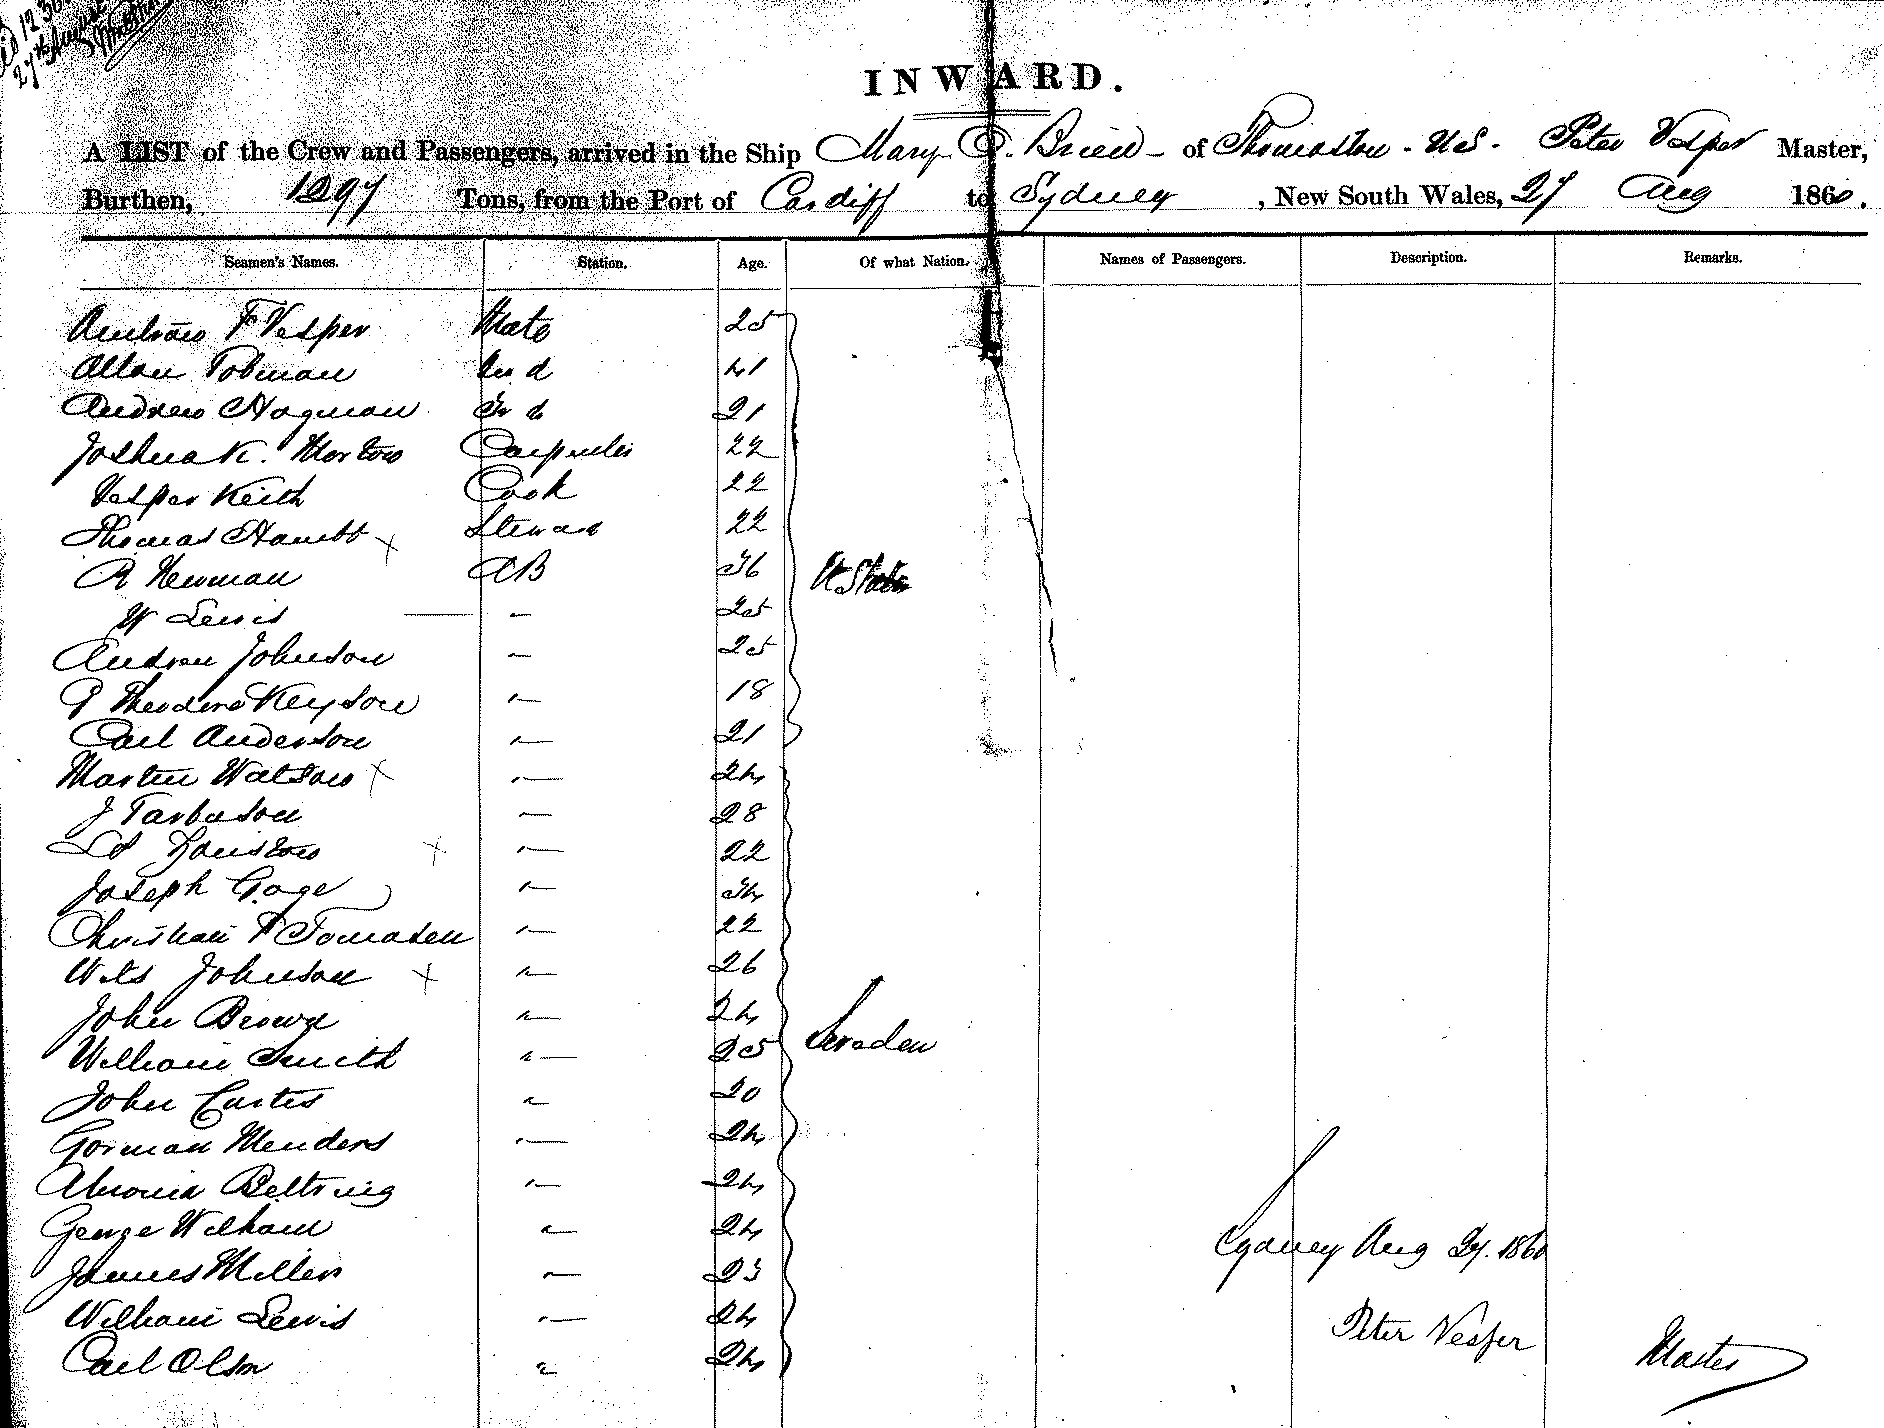 12 30
27th Aug
INWARD.
A LIST of the Crew and Passengers, arrived in the Ship Mary O. Brien - of Thomaston - US. Peter Vesper Master,
Burthen, 1297 Tons, from the Port of Cardiff to Sydney, New South Wales, 27 Aug 1860.
Seamen's Names. Station. Age. Of what Nation. Names of Passengers. Description. Remarks.
F Vesper Mate 25
Tobman 2nd 41
Andrew Hagman 3rd 21
Joshua K. Morton Carpenter 22
Vesper Keith Cook 22
Thomas x Steward 22
R Newman AB 36 U States
W Lewis — " 25
Andrew Johnson " 25
Theodore Keyson " 18
Carl Anderson " 21
Martin Watson x " 24
J " 28
x " 22
Joseph Gage " 34
Christian F Tomasen " 22
Johnson x " 26
John Brown " 24
William Smith " 25 Sweden
John Curtis " 20
Gorman Menders " 24
Beltring " 24
George William " 24
James Miller " 23
William Lewis " 24
Carl Olson " 24
Sydney Aug 27. 1860
Peter Vesper Master